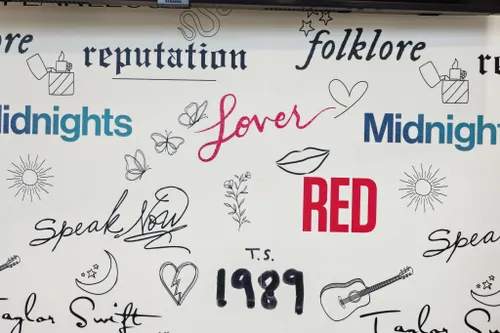 reputation
folklore
re
Midnights
Lover
Midnight
RED
Speak Now
Spea
T.S.
1989
Taylor Swift
Taylor Sw